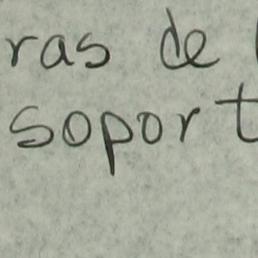 ras de
soport